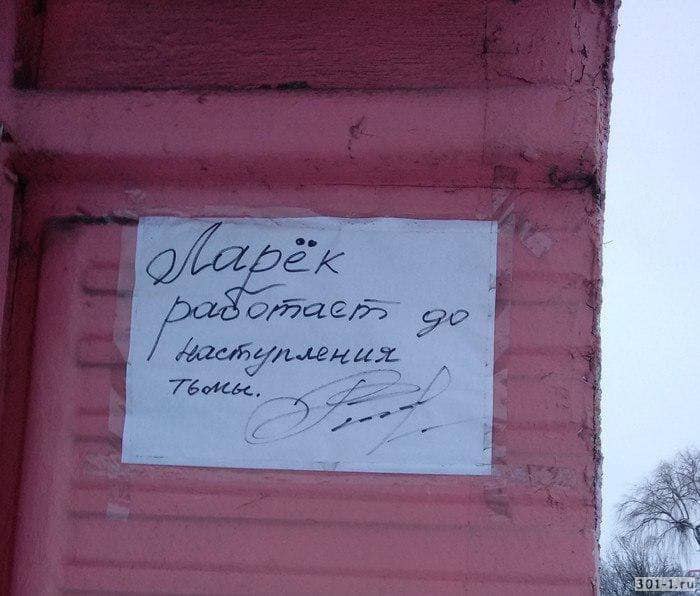 Ларёк
работает до
наступления
тьмы.
301-1.ru